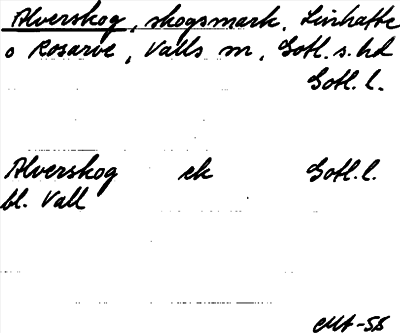 Alverskog, skogsmark, Linhatte
o Rosarve, Valls sn, Gotl. s. hd
Gotl. l.
Alverskog ek Gotl. l.
bl. Vall